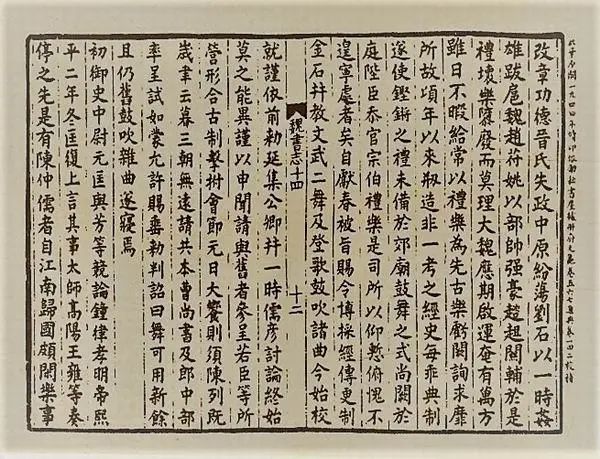 改章功德晉氏失政中原紛蕩劉石以一時姦
雄跋扈魏趙苻姚以部帥强豪趑趄關輔於是
禮壞樂隳廢而莫理大魏應期啟運奄有萬方
雖日不暇給常以禮樂為先古樂虧闕詢求靡
所故頃年以來剏造非一考之經史每乖典制
遂使鏗鏘之禮未備於郊廟鼓舞之式尚闕於
庭陛臣忝官宗伯禮樂是司所以仰慙俯愧不
遑寧處者矣自獻春被旨賜令博採經傳更制
金石并教文武二舞及登歌鼓吹諸曲今始校
魏書志十四
十二
就謹依前勅延集公卿并一時儒彥討論終始
莫之能異謹以申聞請與舊者參呈若臣等所
營形合古制擊拊會節元日大饗則須陳列既
歲聿云暮三朝無遠請共本曹尚書及郎中部
率呈試如蒙允許賜垂勅判詔曰舞可用新餘
且仍舊鼓吹雜曲遂寢焉
初御史中尉元匡與芳等競論鐘律孝明帝熙
平二年冬匡復上言其事太師高陽王雍等奏
停之先是有陳仲儒者自江南歸國頗閑樂事